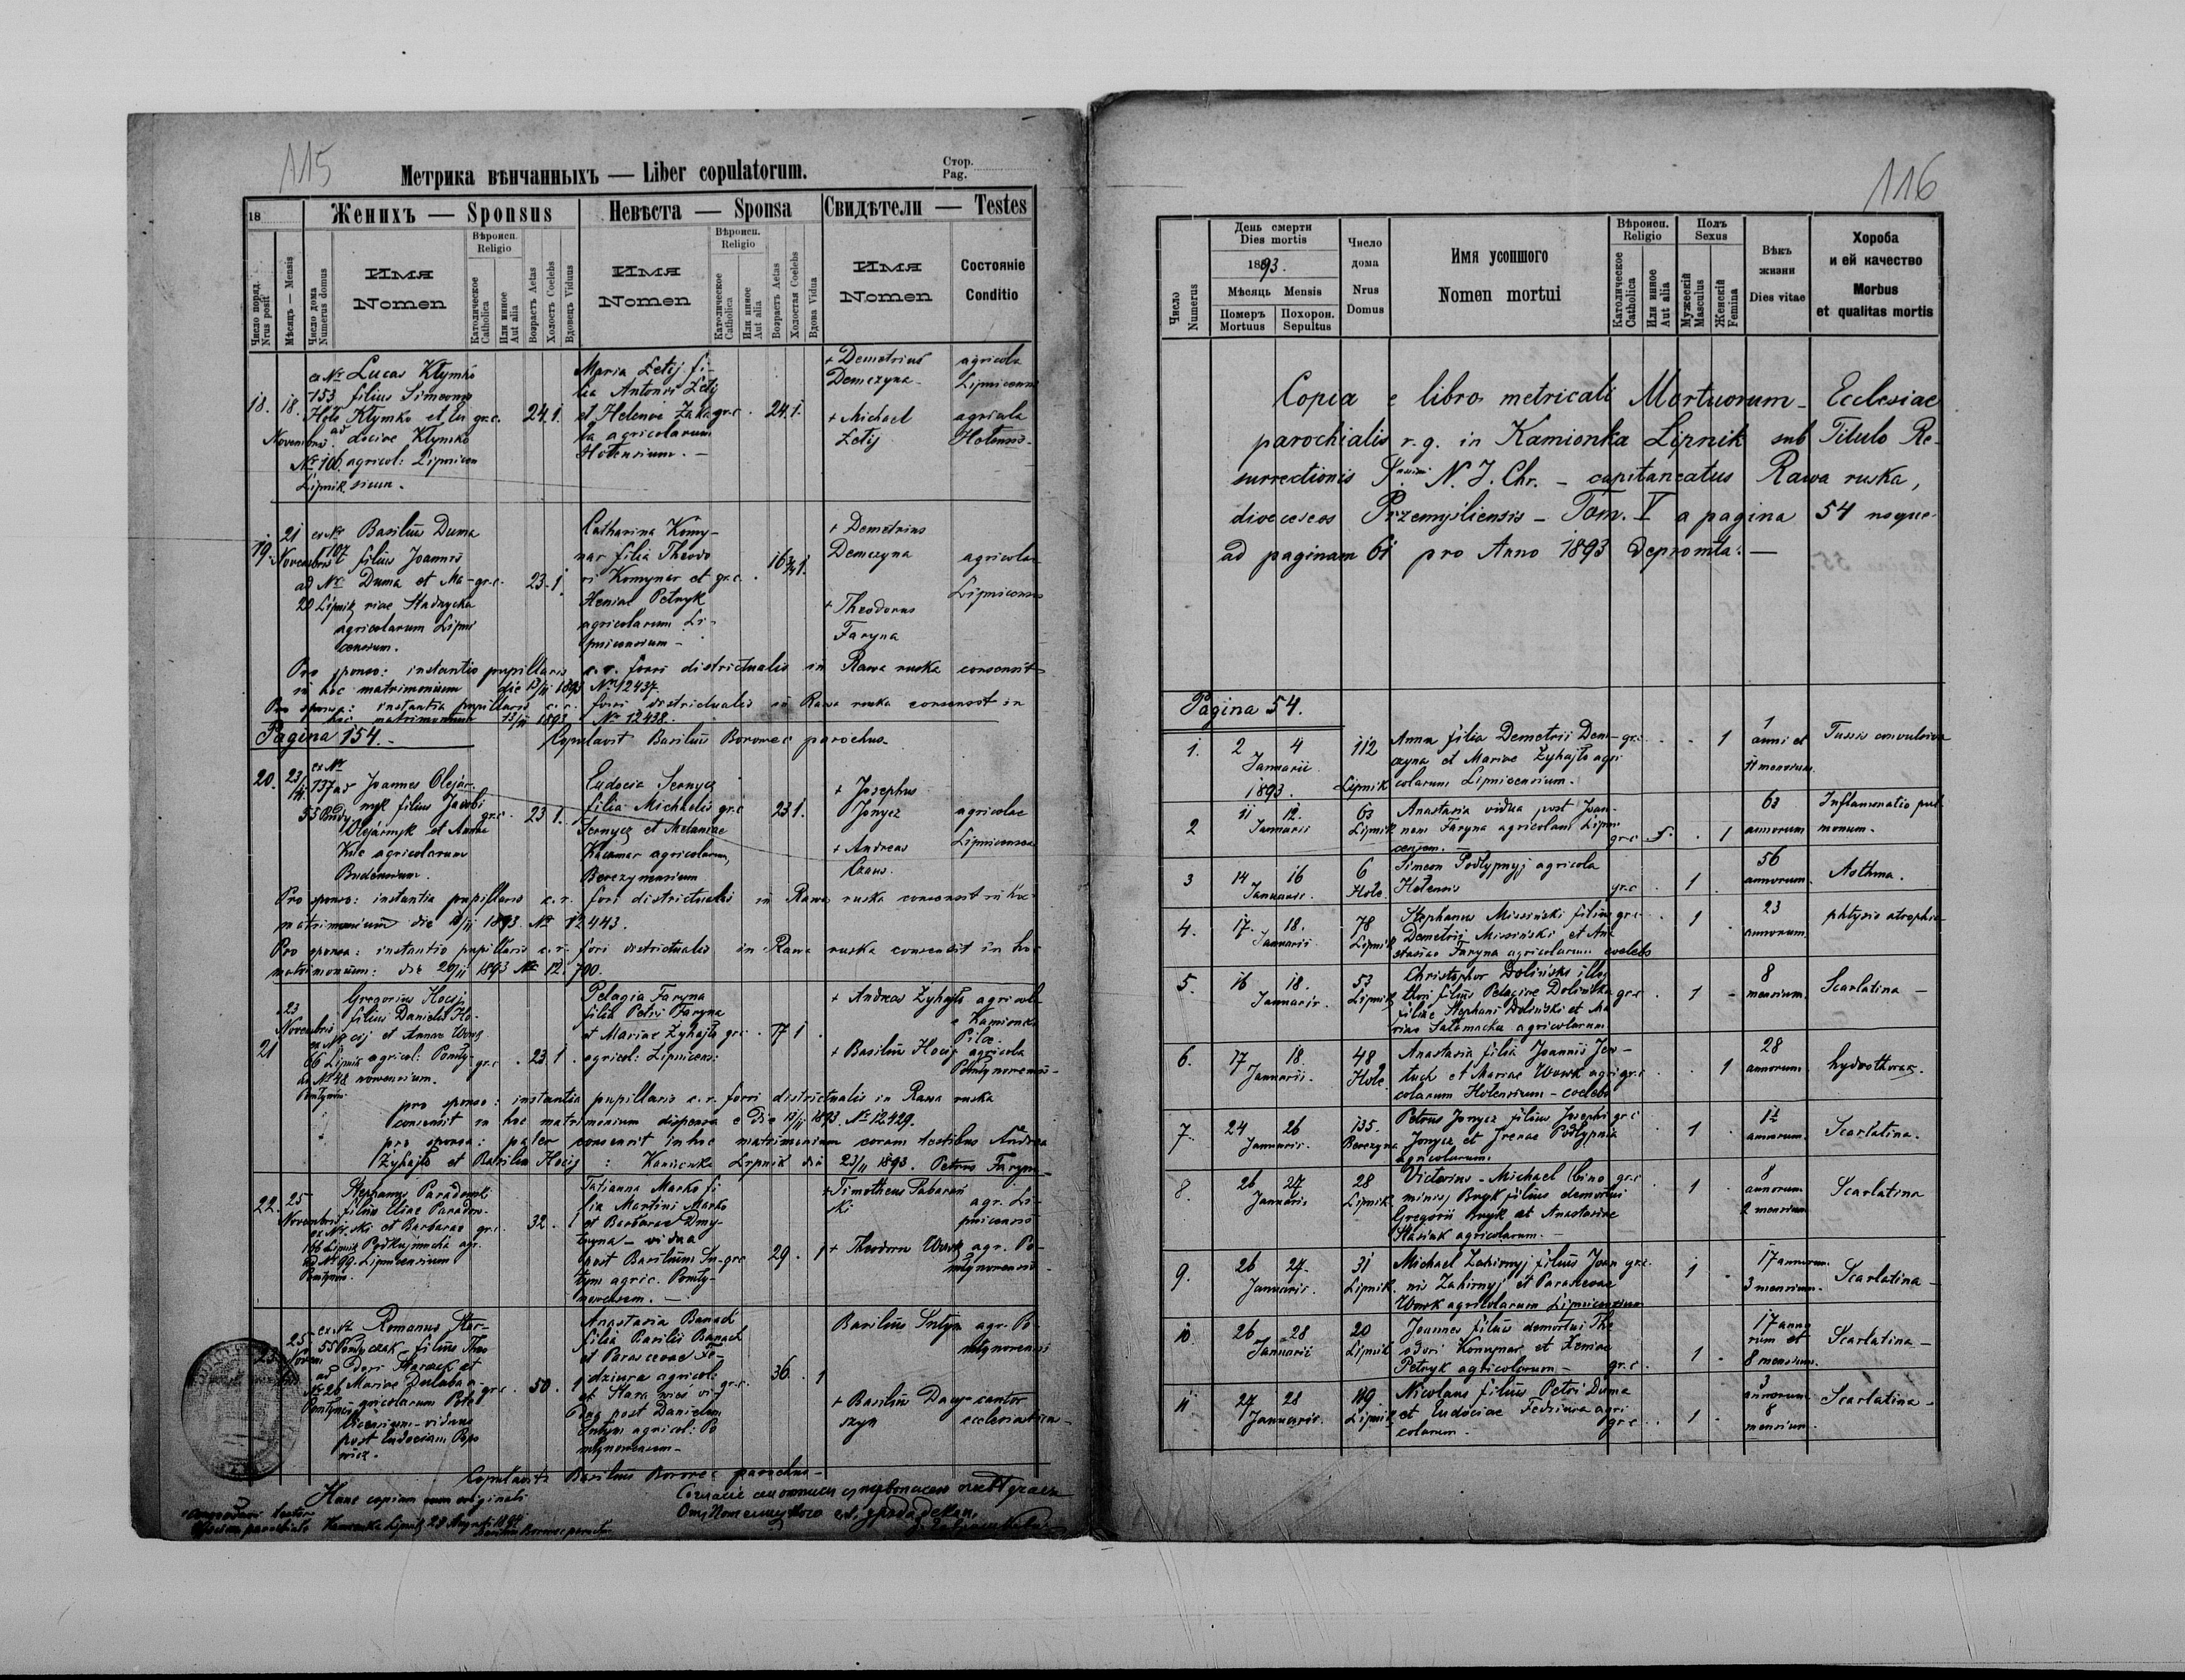 115
Метрика вѣнчанныхъ — Liber copulatorum.
Стор.
Pag.
18
Женихъ — Sponsus
Невѣста — Sponsa
Свидѣтели — Testes
Число поряд.
Nrus posit
Мѣсяцъ — Mensis
Число дома
Numerus domus
Имя
Nomen
Вѣроисп.
Religio
Католическое
Catholica
Или инное
Aut alia
Возрастъ Aetas
Холостъ Coelebs
Вдовецъ Viduus
Имя
Nomen
Вѣроисп.
Religio
Католическое
Catholica
Или инное
Aut alia
Возрастъ Aetas
Холостая Coelebs
Вдова Vidua
Имя
Nomen
Состояніе
Conditio
18. 18.
Novembris
ex Nr
153
Hole
ad
Nr 106
Lipnik
Lucas Kłymko
filius Simeonis
Kłymko et Eu
dociae Kłymko
agricol: Lipnicen
sium.
gr.c. 24. 1.
Maria Letij fi-
lia Antonii Letij
et Helenae Zaka
la agricolarum
Hołensium. —
gr.c. 24. 1.
+ Demetrius
Demczyna
+ Michael
Letij
agricola
Lipnicensis
agricola
Hołensis
19. 21
Novembris
ex Nr
107
ad Nr
20 Lipnik
Basilius Duma
filius Joannis
Duma et Ma-
riae Stadnycka
agricolarum Lipni
censium.
gr.c. 23. 1
Catharina Komy-
nar filia Theodo
ri Komynar et
Heniae Petryk
agricolarum Li-
pnicensium —
gr.c. 16 1.
+ Demetrius
Demczyna
+ Theodorus
Faryna
agricolae
Lipnicenses
Pro sponso: instantia pupillaris c. r. fori districtualis in Rawa ruska consensit
in hoc matrimonium die 13/11 1893 Nr 12437.
Pro sponsa: instantia pupillaris c. r. fori districtualis in Rawa ruska consensit in
hoc matrimonium 13/11 1893 Nr 12438.
Pagina 154. —
Copulavit Basilius Borowec parochus
20. 23/11
ex Nr
137 ad
55 Budy
Joannes Olejar-
nyk filius Jacobi
Olejarnyk et Annae
Kuc agricolarum
Budensium.
gr.c. 23 1.
Eudocia Sernycz
filia Michaelis
Sernycz et Melaniae
Kaczmar agricolarum
Berezynensium
gr.c 23 1.
+ Josephus
Jonycz
+ Andreas
Czaus.
agricolae
Lipnicenses
Pro sponso: instantia pupillaris c. r. fori districtualis in Rawa ruska consensit in hoc
matrimonium die 13/11 1893. Nr 12443.
Pro sponsa: instantia pupillaris c. r. fori districtualis in Rawa ruska consensit in hoc
matrimonium: die 20/11 1893 Nr 12.700.
21
23
Novembris
ex Nr
66 Lipnik
ad Nr 48
Gregorius Hocij
filius Danielis Ho-
cij et Annae Work
agricol: Pomły-
nowensium.
gr.c. 23 1
Pelagia Faryna
filia Petri Faryna
et Mariae Zyhajło
agricol: Lipnicens:
gr.c. 17 1
+ Andreas Zyhajło agricola
e Kamionka
+ Basilius Hocij agricola
Pomłynowensis
pro sponso: instantia pupillaris c. r. fori districtualis in Rawa ruska
consensit in hoc matrimonium dispensa e die 13/11 1893. Nr 12429.
pro sponsa: pater consensit in hoc matrimonium coram testibus Andrea
Zyhajło et Basilio Hocij: Kamionka Lipnik die 23/11 1893. Petrus Faryna
22. 25
Novembris
ex Nr
166 Lipnik
ad Nr 99.
Stephanus Paradowski
filius Eliae Paradow-
ski et Barbarae
agr.
Lipnicensium
gr.c. 32. 1
Tatianna Marko fi
lia Martini Marko
et Barbarae Dmy-
tryna — vidua
post Basilium In-
tyn agric. Pomły-
nowensem. —
gr.c 29. 1
+ Timotheus Tabaczuk
agr. Li-
pnicensis
+ Theodorus Work agr. Po-
młynowensis
25
ex Nr
55
ad
Nr 26
Romanus Star-
czak — filius Theo
dori Starczak et
Mariae Dulaba a-
gricolarum
viduus
post Eudociam Popo
wicz.
gr.c. 50. 1
Anastasia Banach
filia Basilii Banach
et Parascevae Fe-
dziura agricol:
et Stara wies vi-
dua post Danielem
Intyn agricol: Po
młynowensem —
gr.c. 36. 1
Basilius Intyn agr. Po-
młynowensis
+ Basilius Daw-
cantor
ecclesiasticus
Copulavit Basilius Borowec parochus —
Hanc copiam cum originali
Officium parochiale Kamionka Lipnik 28 Augusti
116
Число
Numerus
День смерти
Dies mortis
1893.
Мѣсяць Mensis
Померъ
Mortuus
Похорон.
Sepultus
Число
дома
Nrus
Domus
Имя усопшого
Nomen mortui
Вѣроисп.
Religio
Католическое
Catholica
Или инное
Aut alia
Полъ
Sexus
Мужескій
Masculus
Женскій
Femina
Вѣкъ
жизни
Dies vitae
Хороба
и ей качество
Morbus
et qualitas mortis
Copia e libro metricali Mortuorum — Ecclesiae
parochialis r. g. in Kamionka Lipnik sub Titulo Re-
surrectionis N. J. Chr. — capitaneatus Rawa ruska,
dioeceseos Przemysliensis — Tom. V a pagina 54 usque
ad paginam 61 pro Anno 1893 depromta: —
Pagina 54.
1. 2 4
Januarii
1893.
112
Lipnik
Anna filia Demetrii Dem-
czyna et Mariae Zyhajło agri
colarum Lipnicensium.
gr.c. 1
1
anni et
11 mensium
Tussis convulsiva
2 11 12.
Januarii
63
Lipnik
Anastasia vidua post Joan-
nem Faryna agricolam Lipni
censem. —
gr.c 1
63
annorum
Inflammatio pul
monum.
3 14 16
Januarii
6
Hole
Simeon Podłypnyj agricola
Hołensis
gr.c 1
56
annorum
Asthma.
4. 17. 18.
Januarii
78
Lipnik
Stephanus Missiński filius
Demetrii Missiński et Ana
stasiae Faryna agricolarum coelebs
gr.c 1
23
annorum
phtysis atrophia
5. 16 18.
Januarii
53
Lipnik
Christophor Doliński illegi
thim filius Pelagiae Dolińska
filiae Stephani Doliński et Ma
riae Sałamacha agricolarum
gr.c 1
8
mensium
Scarlatina —
6. 17 18
Januarii.
48
Hole
Anastasia filia Joannis Jew-
tuch et Mariae Wowk agri
colarum Hołensium — coelebs
gr.c 1
28
annorum
hydrothorax.
7 24 26
Januarii
135.
Berezyna
Petrus Jonycz filius Josephi
Jonycz et Irenae Podłypna
agricolarum.
gr.c 1
annorum
Scarlatina.
8. 26 27
Januarii
28
Lipnik
Victorius — Michael (bino
minis) Bryk filius demortui
Gregorii Bryk et Anastasiae
Stasiuk agricolarum. —
gr.c 1
8
annorum
2 mensium
Scarlatina
9. 26 27
Januarii.
31
Lipnik.
Michael Zahirnyj filius Joan
nis Zahirnyj et Parascevae
Wowk agricolarum Lipnicensium
gr.c. 1
17 annorum
3 mensium.
Scarlatina —
10 26 28
Januarii
20
Lipnik
Joannes filius demortui The
odori Komynar et Xeniae
Petryk agricolarum —
gr.c. 1
17 anno
rum et
8 mensium.
Scarlatina —
11 27 28
Januarii
119
Lipnik
Nicolaus filius Petri Duma
et Eudociae Fedziura agri
colarum —
gr.c 1
3
annorum
8
mensium
Scarlatina —